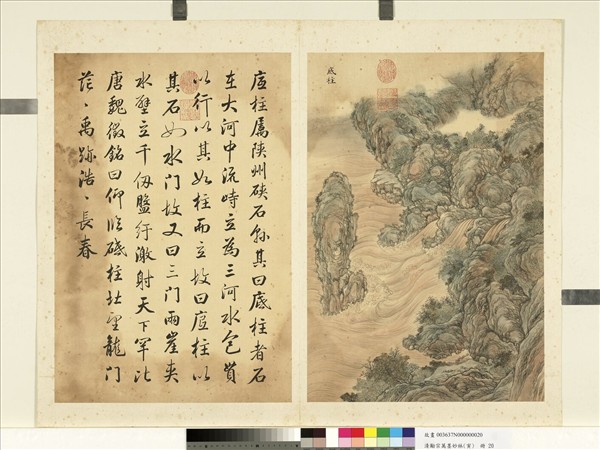 底柱
底柱屬陝州硤石縣其曰底柱者石
在大河中流峙立為三河水包貫
以行以其如柱而立故曰底柱以
其石如水門故又曰三門兩崖夾
水壁立千仞盤紆激射天下罕比
唐魏徵銘曰仰臨砥柱北望龍門
茫、禹跡浩、長春
故畫 003637N000000020
清勵宗萬墨妙珠林(寅) 冊 20